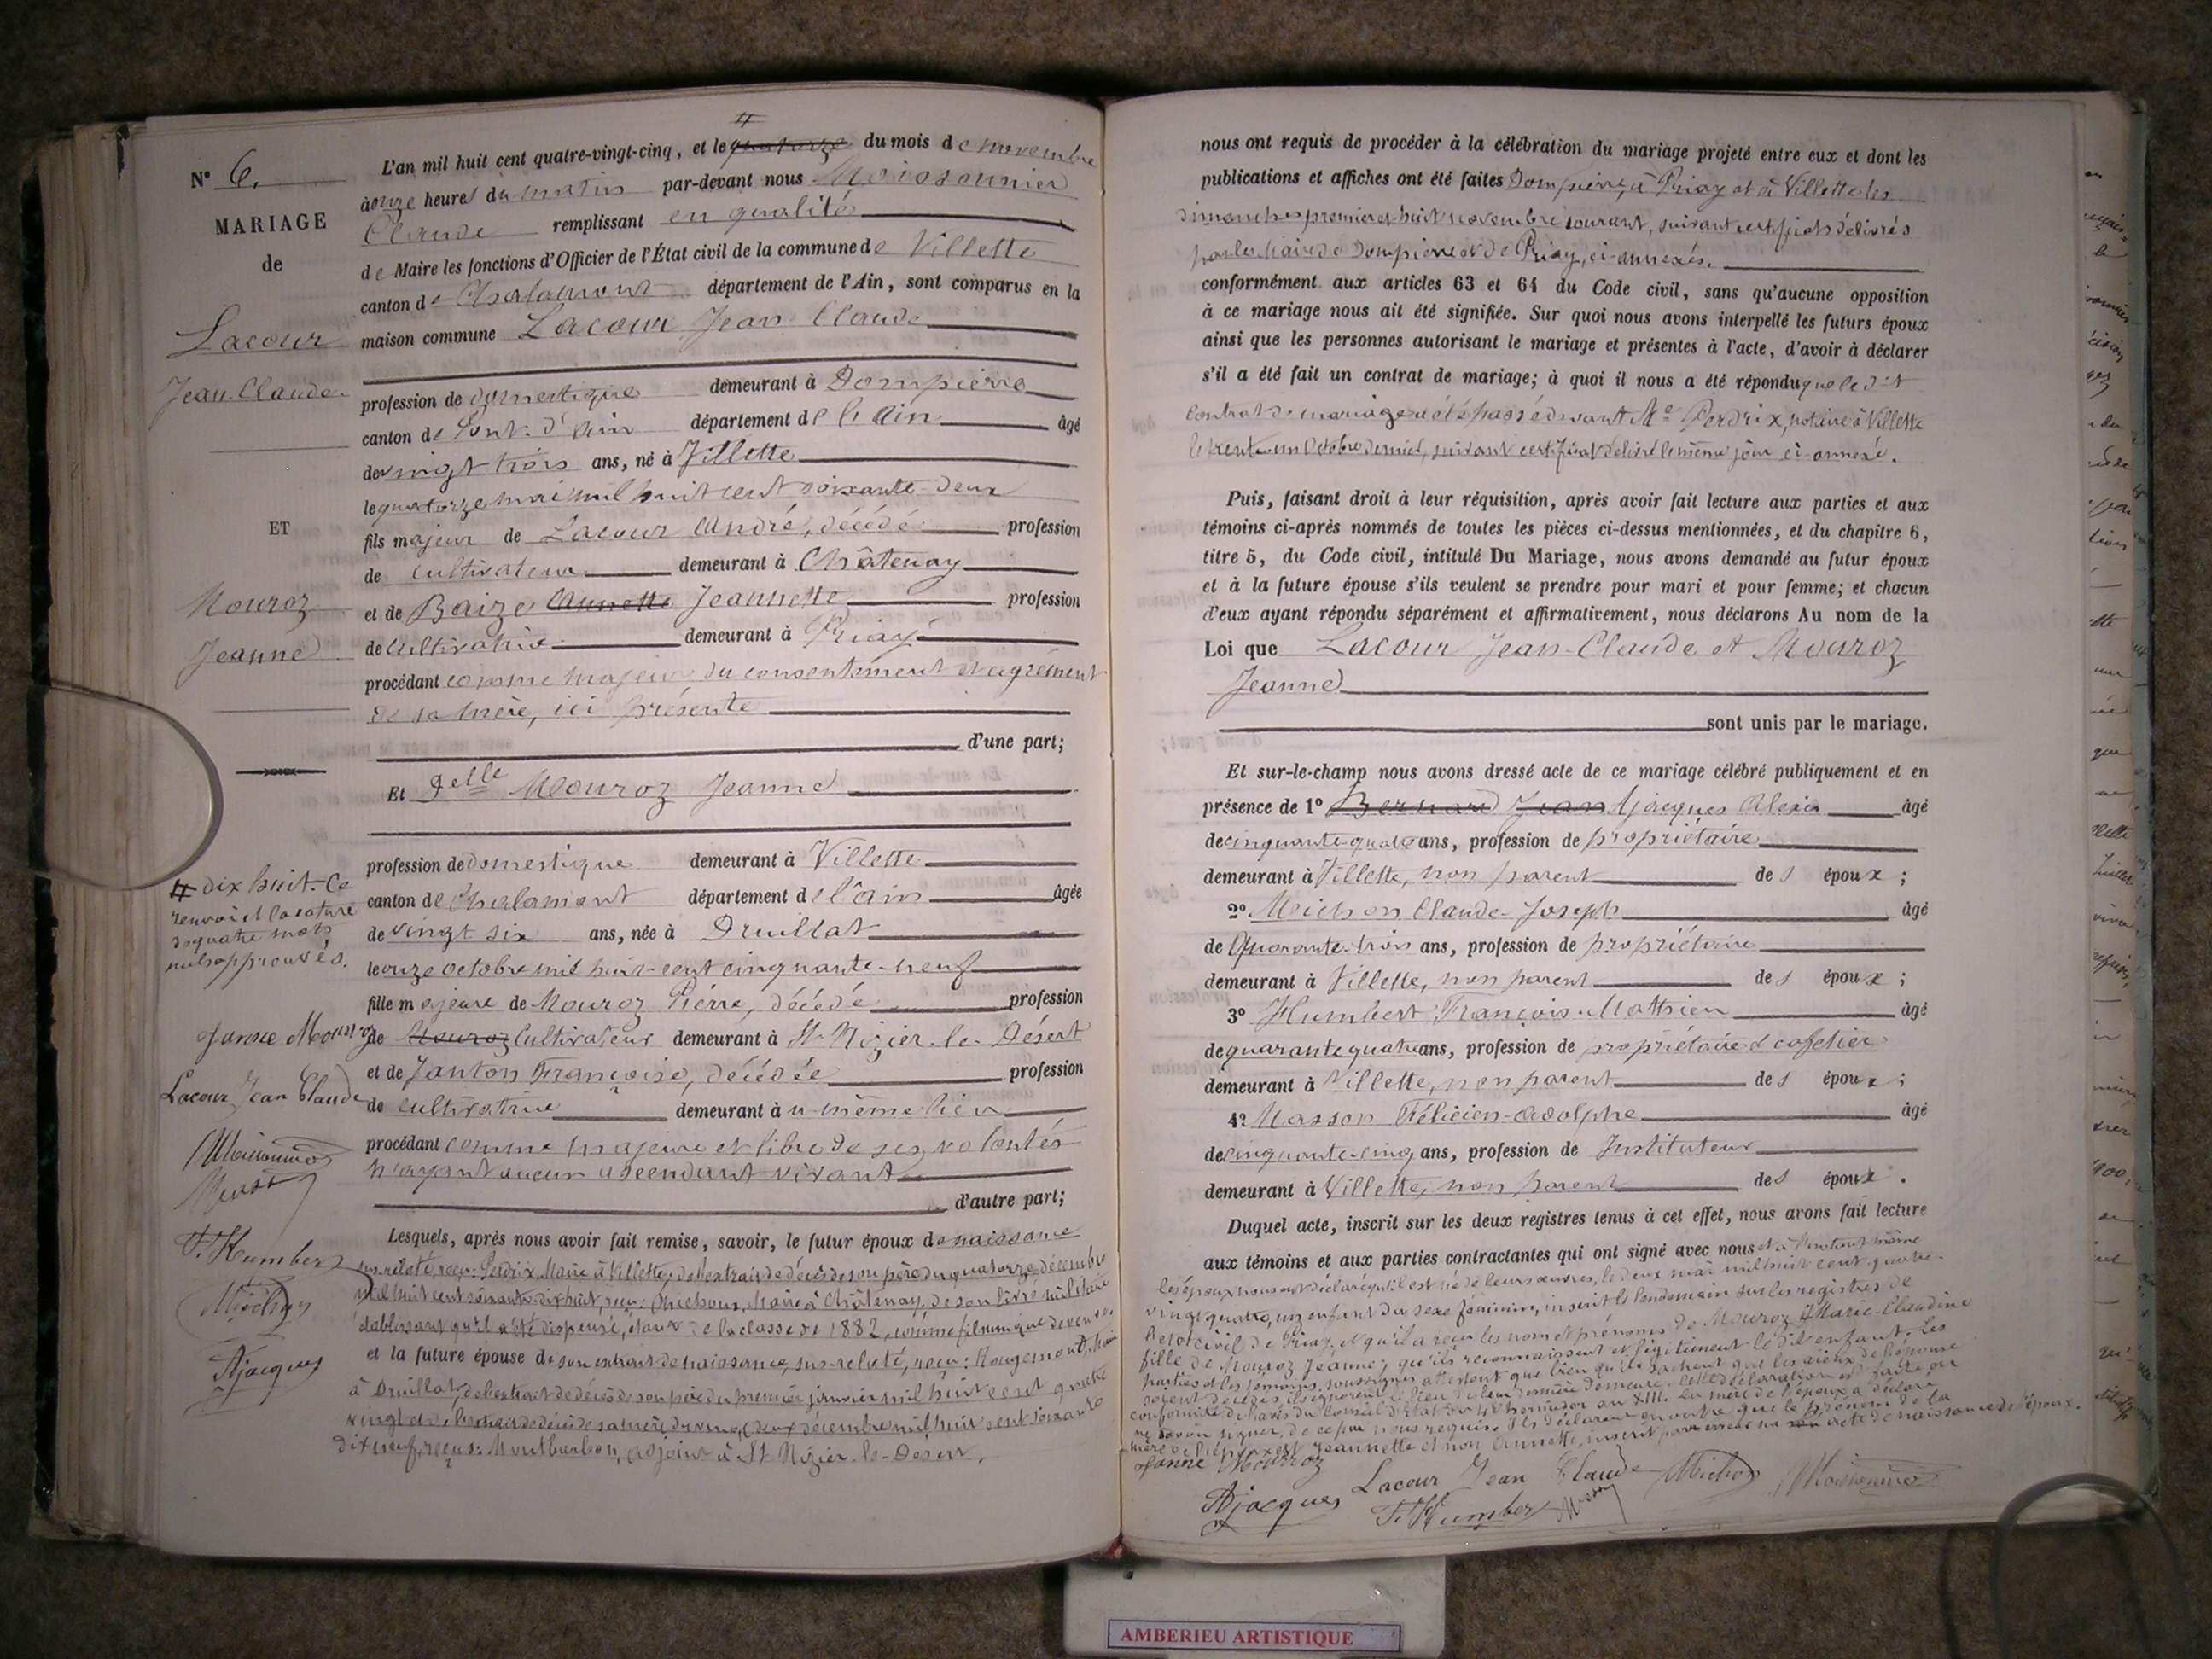 N° 6.
MARIAGE
de
Lacour
Jean-Claude
ET
Mouroz
Jeanne
# dix huit. Ce
renvoi et la rature
de quatre mots
nuls approuvés.
Janne Mouroz
Lacour Jean Claude
F. Humber
Michon
Ajacques
#
L'an mil huit cent quatre-vingt-cinq, et le quatorze du mois de novembre
à onze heures du matin par-devant nous Moissonnier
Claude remplissant en qualité
de Maire les fonctions d'Officier de l'État civil de la commune de Villette
canton de Chalamont département de l'Ain, sont comparus en la
maison commune Lacour Jean Claude
profession de domestique demeurant à Dompierre
canton de Pont-d'Ain département de l'Ain âgé
de vingt trois ans, né à Villette
le quatorze mai mil huit cent soixante-deux
fils majeur de Lacour André, décédé profession
de cultivateur demeurant à Châtenay
et de Baize Annette Jeannette profession
de cultivatrice demeurant à Priay
procédant comme majeur du consentement et agrément
de sa mère, ici présente
d'une part;
Et Delle Mouroz Jeanne
profession de domestique demeurant à Villette
canton de Chalamont département de l'Ain âgée
de vingt six ans, née à Druillat
le onze octobre mil huit-cent cinquante-neuf
fille majeure de Mouroz Pierre, décédé profession
de Mouroz Cultivateur demeurant à St Nizier-le-Désert
et de Janton Françoise, décédée profession
de cultivatrice demeurant au même lieu
procédant comme majeure et libre de ses volontés
n'ayant aucun ascendant vivant
d'autre part;
Lesquels, après nous avoir fait remise, savoir, le futur époux de naissance
sus-relaté, reçu: Perdrix, Maire à Villette, de l'extrait de décès de son père du quatorze décembre
mil huit cent soixante-dix huit, reçu: Michoux, Maire à Châtenay, de son livret militaire
établissant qu'il a été dispensé, de la classe de 1882, comme fils unique de veuve
et la future épouse de son extrait de naissance, sus-relaté, reçu: Rougemont, Maire
à Druillat, de l'extrait de décès de son père du premier janvier mil huit cent quatre
vingt et de l'extrait de décès de sa mère du vingt deux décembre mil huit cent soixante
dix neuf, reçus: Montburbon, adjoint à St Nizier-le-Désert.
nous ont requis de procéder à la célébration du mariage projeté entre eux et dont les
publications et affiches ont été faites Dompierre, à Priay et à Villette les
dimanches premier et huit novembre courant, suivant certificats délivrés
par les Maires de Dompierre et de Priay, ci-annexés.
conformément aux articles 63 et 64 du Code civil, sans qu'aucune opposition
à ce mariage nous ait été signifiée. Sur quoi nous avons interpellé les futurs époux
ainsi que les personnes autorisant le mariage et présentes à l'acte, d'avoir à déclarer
s'il a été fait un contrat de mariage; à quoi il nous a été répondu que le dit
contrat de mariage a été passé devant Me Perdrix, notaire à Villette
le trente-un Octobre dernier, suivant certificat délivré le même jour ci-annexé.
Puis, faisant droit à leur réquisition, après avoir fait lecture aux parties et aux
témoins ci-après nommés de toutes les pièces ci-dessus mentionnées, et du chapitre 6,
titre 5, du Code civil, intitulé Du Mariage, nous avons demandé au futur époux
et à la future épouse s'ils veulent se prendre pour mari et pour femme; et chacun
d'eux ayant répondu séparément et affirmativement, nous déclarons Au nom de la
Loi que Lacour Jean-Claude et Mouroz
Jeanne
sont unis par le mariage.
Et sur-le-champ nous avons dressé acte de ce mariage célébré publiquement et en
présence de 1° Bernard Jean Ajacques Alexis âgé
de cinquante-quatre ans, profession de propriétaire
demeurant à Villette, non parent des époux ;
2° Michon Claude-Joseph âgé
de Quarante-trois ans, profession de propriétaire
demeurant à Villette, non parent des époux ;
3° Humbert François-Mathieu âgé
de quarante quatre ans, profession de propriétaire & cafetier
demeurant à Villette, non parent des époux ;
4° Masson Félicien-Adolphe âgé
de cinquante-cinq ans, profession de Instituteur
demeurant à Villette, non parent des époux .
Duquel acte, inscrit sur les deux registres tenus à cet effet, nous avons fait lecture
aux témoins et aux parties contractantes qui ont signé avec nous et à l'instant même
les époux nous ont déclaré qu'il est né de leurs œuvres, le deux mai mil huit cent quatre-
vingt quatre, un enfant du sexe féminin, inscrit le lendemain sur les registres de
l'état civil de Priay, et qu'il a reçu les nom et prénoms de Mouroz Marie-Claudine
fille de Mouroz Jeanne; qu'ils reconnaissent et légitiment le dit enfant. Les
parties et les témoins soussignés attestent que bien qu'ils sachent que les aïeux de l'épouse
soient décédés, ils ignorent le lieu de leur dernière demeure. Cette déclaration est faite en
conformité de l'avis du Conseil d'Etat du 4 thermidor an XIII. La mère de l'époux a déclaré
ne savoir signer, de ce par nous requis. Ils déclarent en outre que le prénom de la
mère de l'époux est Jeannette et non Annette, inscrit par erreur sur son acte de naissance de l'époux.
Janne Mouroz
Lacour Jean Claude
Michon
Moissonnier
Ajacques
F. Humber
AMBERIEU ARTISTIQUE